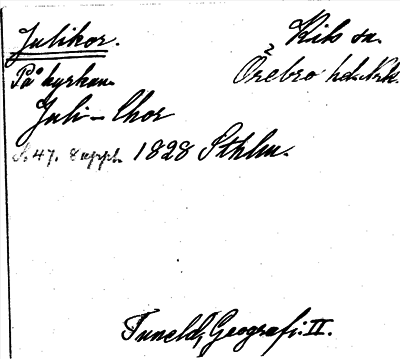 Julikor.
Kils sn.
På kyrkan.
Örebro hd. Nrk.
Juli-Chor
S. 47. 8 uppl. 1828 Sthlm.
Tuneld, Geografi. II.